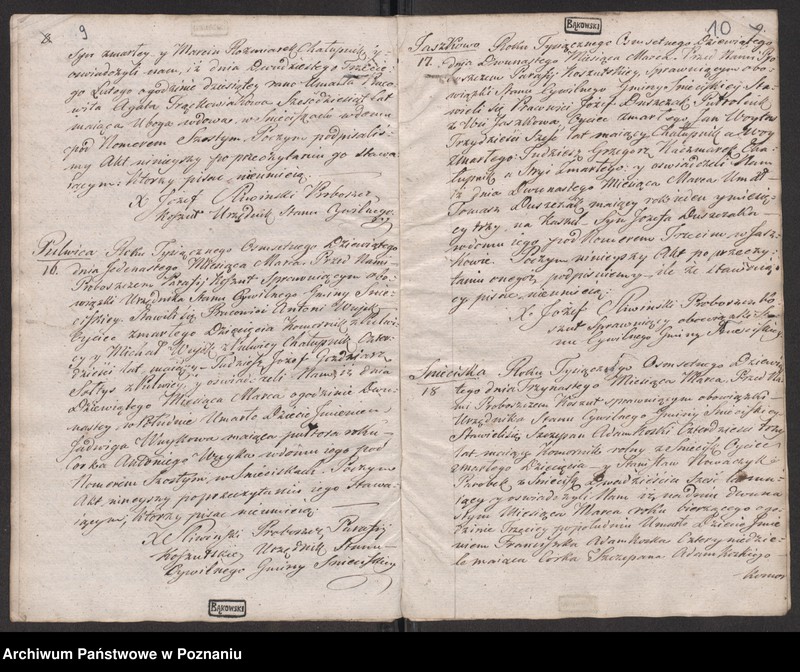 9
Syn zmarłey y Marcin Rozmiarek Chałupnik y
oswiadczyli nam, iż dnia Dwudziestego Trzecie-
go Lutego ogodzinie dziesiątey rano Umarła Praco-
wita Agata Frąckowiakowa Sześdziesiąt lat
maiąca Uboga wdowa, w Snieciskach w domu
pod Numerem Szostym. Poczym podpisaliś-
my Akt ninieyszy po przeczytaniu go Stawa-
iącym: którzy pisać nieumieią:
X Jozef Sliwinski Proboszcz
Koszut: Urzędnik Stanu Cywilnego
Pulwica Roku Tysiącznego Osmsetnego Dziewiątego
16. Dnia Jedenastego Miesiąca Marca. Przed Nami
Proboszczem Parafij Koszut Sprawuiącym obo-
wiązki Urzędnika Stanu Cywilnego Gminy Snie-
ciskiey. Stawili się Pracowici Antoni Wuyik
Oyciec zmarłego Dziecięcia Komornik z Pulwi-
cy y Michał Wuyik z Pulwicy Chałupnik Czter-
dzieści lat maiący - Tudzież Jozef Gozdziarz
Sołtys z Pulwicy, y oswiadczeli Nam iż dnia
Dziewiątego Miesiąca Marca ogodzinie Dwu-
nastey w Południe Umarło Dziecie Jmieniem
Jadwiga Wuykowa maiąca pułtora roku
Corka Antoniego Wuyika w domu iego pod
Numerem Szostym, w Snieciskach. Poczym
Akt ninieyszy po przeczytaniu iego Stawa-
iącym, którzy pisać nieumieią
X Sliwinski Proboszcz Parafij
Koszutskiey Urzędnik Stanu
Cywilnego Gminy Snieciskiey
BĄKOWSKI
BĄKOWSKI
10
Jaszkowo Roku Tysiącznego Osmsetnego Dziewiątego
17. Dnia Dwunastego Miesiąca Marca. Przed Nami Pro-
boszczem Parafij Koszutskiey, sprawuiącym obo-
wiązki Stanu Cywilnego Gminy Snieciskiey Sta-
wieli się Pracowici Jozef Duszczak
z Wsi Jaszkowa Oyciec zmarłego, Jan Woytas
Trzydzieści Sześć lat maiący Chałupnik a Wuy
Zmarłego: Tudziesz Grzegorz Kaczmarek Cha-
łupnik a Stryi zmarłego: y oswiadczeli Nam
iż dnia Dwunastego Miesiąca Marca Umarł
Tomasz Duszczak maiący rok ieden y miesię-
cy trzy na Kaszel - Syn Jozefa Duszczaka
w domu iego pod Numerem Trzecim w Jasz-
kowie. Poczym ninieyszy Akt po przeczy-
taniu onegoż podpisuiemy - ile że stawaiący
pisać nieumieią:
X Jozef Sliwinski Proboszcz Ko-
szut Sprawuiący obowiązki Sta-
nu Cywilnego Gminy Snieciskiey
Snieciska Roku Tysiącznego Osmsetnego Dziewią-
18 tego dnia Trzynastego Miesiąca Marca. Przed Na-
mi Proboszczem Koszut sprawuiącym obowiązki
Urzędnika Stanu Cywilnego Gminy Snieciskiey
Stawieli się Szczepan Adamkoski Czterdzieści trzy
lat maiący Komornik rolny z Sniecisk Oyciec
zmarłego Dziecięcia - y Stanisław Nowaczyk
Parobek z Sniecisk Dwadzieścia Sześć lat ma-
iący y oswiadczyli Nam iż na dniu dwuna-
stym Miesiąca Marca roku bierzącego ogo-
dzinie Trzeciey popołudniu Umarło Dziecie Jmie-
niem Franciszka Adamkoska Cztery niedzie-
le maiąca Corka Szczepana Adamkoskiego
Komor
Archiwum Państwowe w Poznaniu